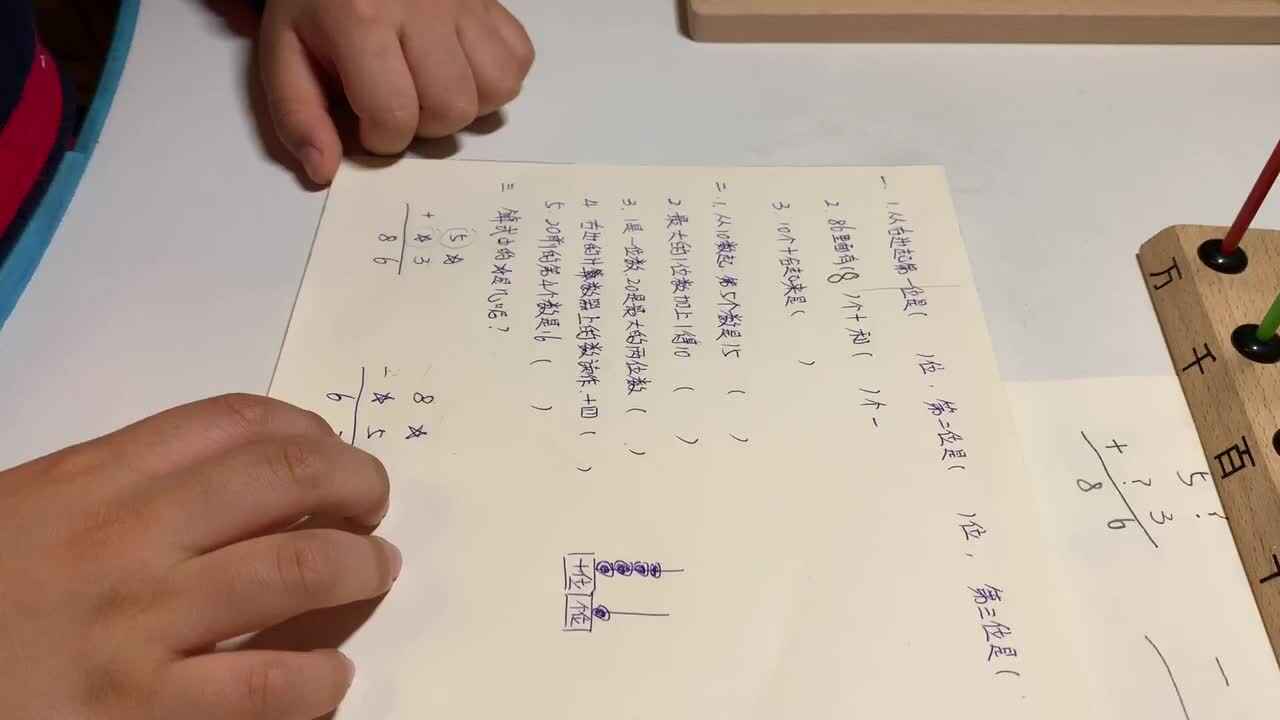 一 1.从右边起第一位是( )位,第二位是( )位,第三位是(
2. 86里面有(8 )个十和( )个一
3. 10个十合起来是( )
二 1.从10数起,第5个数是15 ( )
2 最大的1位数加上1得10 ( )
3. 1是一位数,20是最大的两位数 ( )
4 右边的计数器上的数读作:十四 ( )
5. 20前的第4个数是16 ( )
十位 个位
三
5 ☆
+ ☆ 3
8 6
8 ☆
- ☆ 5
6
5 ?
+ ? 3
8 6
万
千
百
十